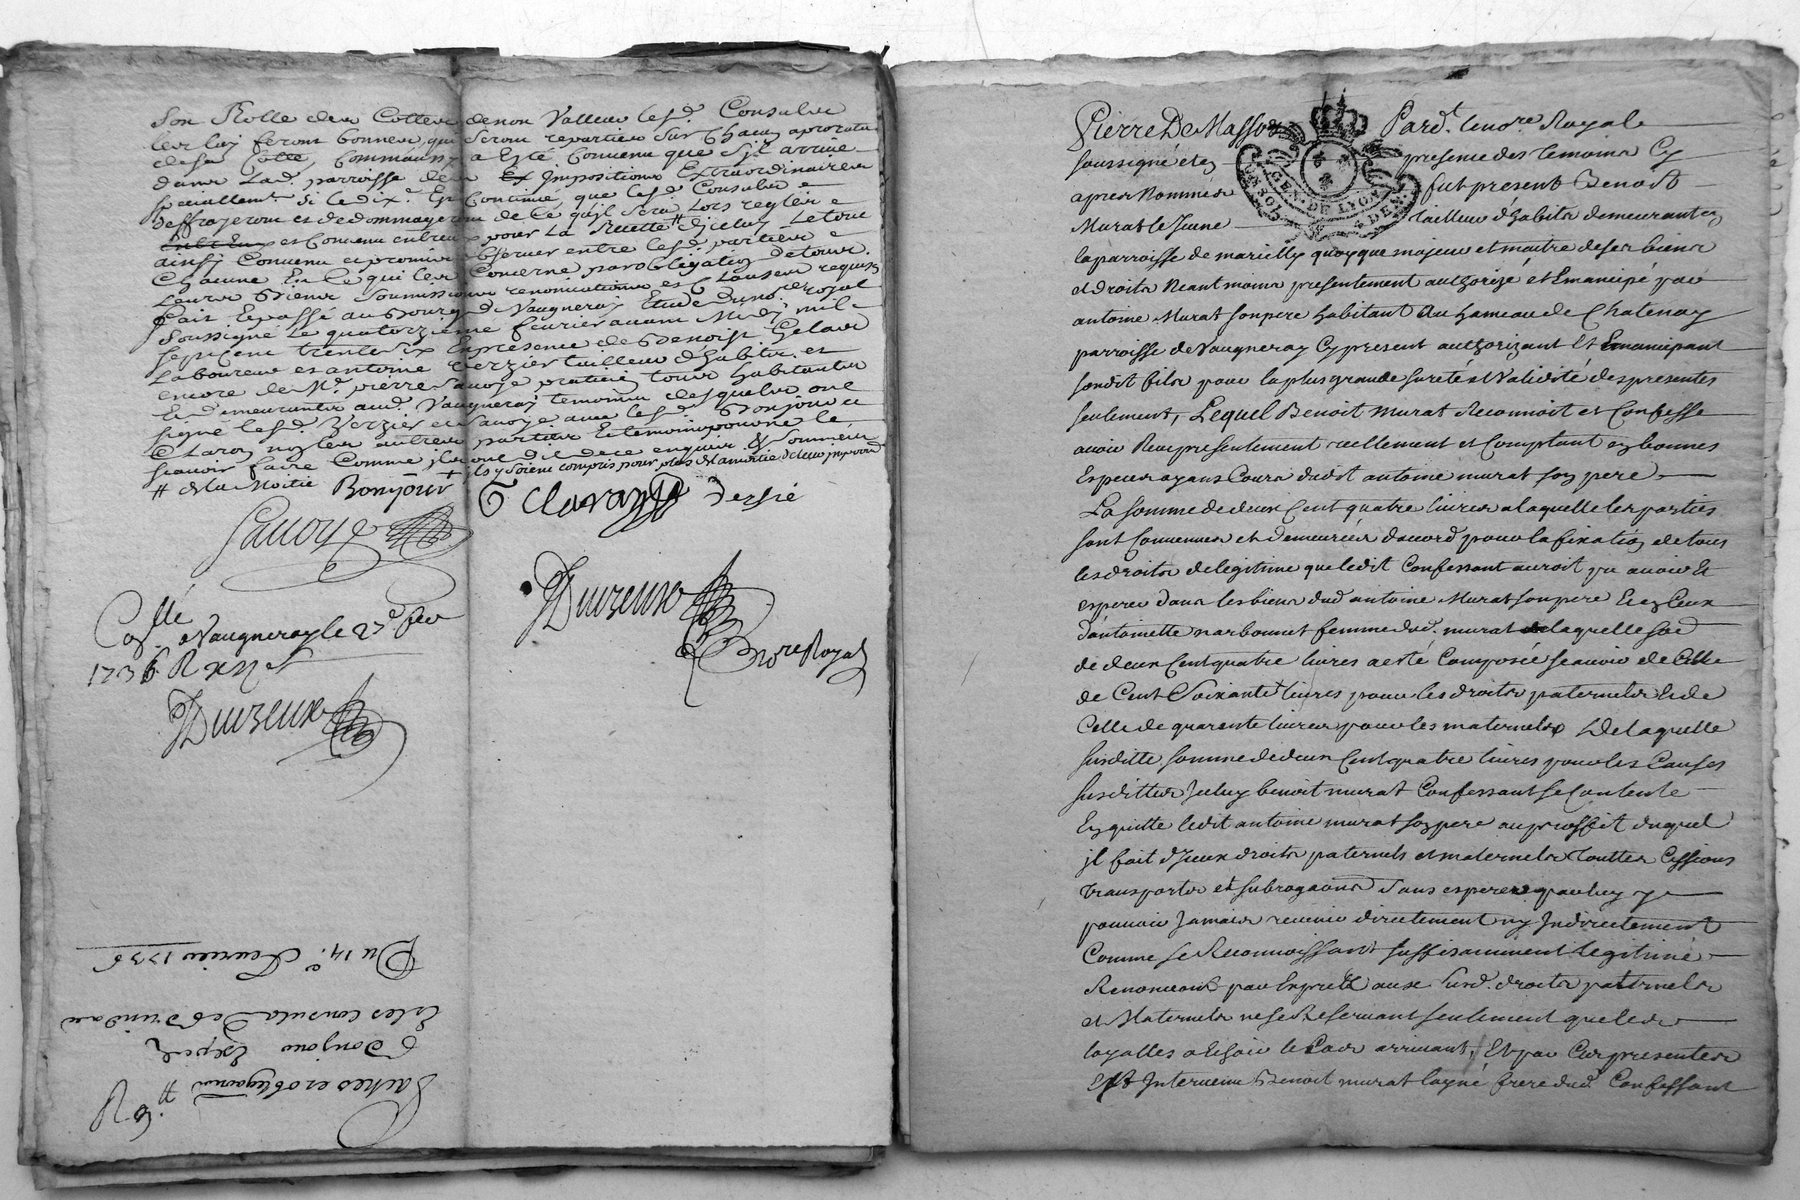 Son Rolle des Cottes de non Valleur lesd. Consuls
leur luy feront bonnes, qui seront reparties sur Chacun aprorata
de sa Cotte, Comm aussy a Esté Convenu que S'jl arrive
dans Lad. parroisse des Impositions Extraordinaires
 si le dix.e Est Continué, que lesd. Consuls
deffrayeront et dedommageront de Ce qu'jl sera Lors reglé
et Convenu entreux pour La Reuette # d'jceluy Le tout
ainsy Convenu et promis observer entre lesd. parties
Chacune En Ce qui les Concerne par obligation de tous
Leurs Biens Soumissions renonciations et Clauses requises
fait Et passé au Bourg de Vaugneray Etude du no.re royal
Soussigné Le quatorzieme feurier avant Midy mil
sept cent trente six En presence de Benoist Gelas
Laboureur et antoine Verzier tailleur d'habits et
encore de M.e pierre Sauoye praticien tous habitants
Et demeurants aud. Vaugneray temoins desquels ont
signé lesd. Verzier et Sauoye avec lesd. Bonjour et
Claron non les autres parties Et temoins pour ne le
scauoir faire Comme jls ont dit de ce enquis & Sommés
# de la Moitié + ils y soient compris pour plus de la moitié de leur
Bonjour C Claron Versié
Sauoye
DuuZeux
No.re Royal
Con.llé a Vaugneray le 27.e feu
1736. R
DuuZeux
Du 14.e Feurier 1736
Pactes et obligaõns
Bonjour Exper
Et les consuls de Brindas
Pierre De Masso Pard.t le no.re Royal
soussigné et en presence des temoins Cy
apres Nommés fut present Benoist
Murat le Jeune tailleur d'habits demeurant en
la parroisse de marcilly quoyque majeur et maitre de ses biens
et droits Neantmoins presentement authorizé et Emancipé par
antoine Murat son pere habitant Au hameau de Chatenay
parroisse de Vaugneray Cy present authorizant Et Emancipant
sondit fils pour la plus grande sureté et Validité des presentes
seulement, Lequel Benoit Murat Reconnoit et Confesse
avoir Receu presentement reellement et Comptant en bonnes
Especes ayans Cours dudit antoine murat son pere
La somme de deux Cent quatre livres a laquelle les parties
sont Convenues et demeurées d'acord pour la fixation de tous
les droits de legitime que ledit Confessant auroit pu avoir Et
esperer dans les biens dud antoine Murat son pere Et en Ceux
d'antoinette narbonnet femme dud. murat laquelle sõe
de deux Cent quatre livres a esté Composée scavoir de Celle
de Cent Soixante livres pour les droits paternels Et de
Celle de quarente livres pour les maternels De laquelle
susditte somme de deux Cent quatre livres pour les Causes
susdittes Jceluy benoit murat Confessant se Contente
En quitte ledit antoine murat son pere au proffit duquel
jl fait d'Jceux droits paternels et maternels touttes Cessions
transports et subrogaõns Sans esperer par luy y
pouvoir Jamais revenir directement ny Indirectement
Comme se Reconnoissant suffisamment legitimé
Renonceant par Exprés aux susd. droits paternels
et Maternels ne se Reservant seulement que les
loyalles a Echoir le Cas arrivant, Et par Ces presentes
Est Intervenu Benoit murat l'ayné frere dud Confessant